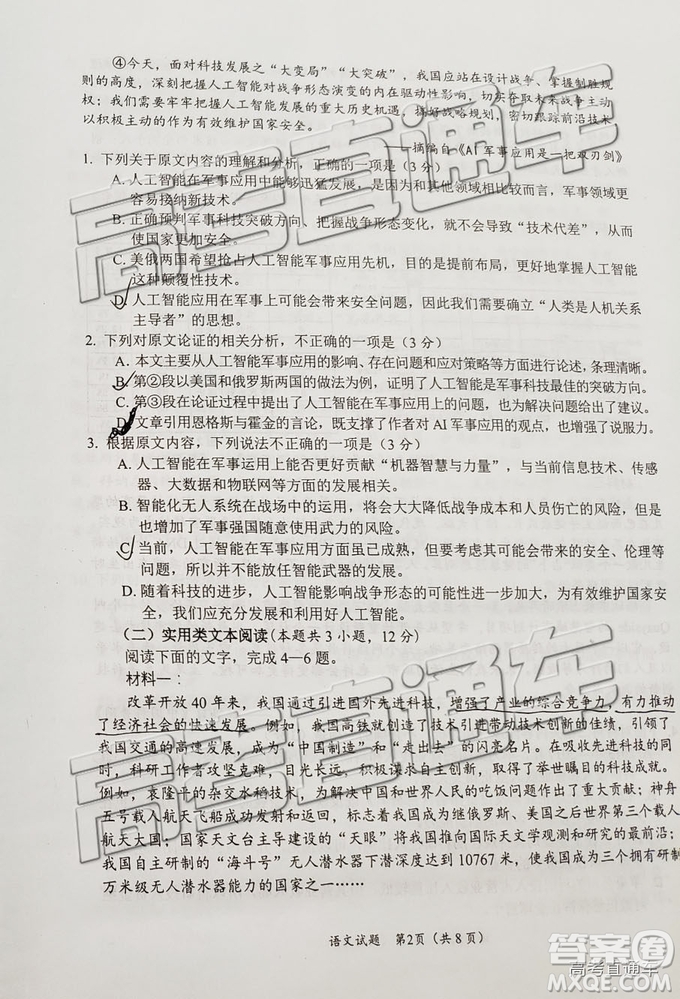 ④今天，面对科技发展之“大变局”“大突破”，我国应站在设计战争、掌握制胜规
则的高度，深刻把握人工智能对战争形态演变的内在驱动性影响，切实夺取未来战争主动
权；我们需要牢牢把握人工智能发展的重大历史机遇，搞好战略规划，密切跟踪前沿技术
以积极主动的作为有效维护国家安全。
——摘编自《AI军事应用是一把双刃剑》
1. 下列关于原文内容的理解和分析，正确的一项是(3分)
A. 人工智能在军事应用中能够迅猛发展，是因为与其他领域相比，军事领域更
容易接纳新技术。
B. 正确预判军事科技突破方向、把握战争形态变化，就不会有“技术代差”，从而
使国家更加安全。
C. 美俄两国希望抢占人工智能军事应用先机，目的是更好地掌握人工智能
这种颠覆性技术。
D. 人工智能应用在军事上可能会存在安全问题，因此我们需要确立“人类是人机关系
主导者”的思想。
2. 下列对原文论证的相关分析，不正确的一项是(3分)
A. 本文主要从人工智能军事应用的影响、存在问题及应对策略等方面进行论述，条理清晰。
B. 第②段以美国和俄罗斯两国的做法为例，证明了人工智能是军事科技最佳的突破口。
C. 第③段在论证过程中提出了人工智能军事应用存在安全问题并给出了建议。
D. 文章引用恩格斯与霍金的言论，既支撑了作者对AI军事应用的观点，也增强了说服力。
3. 根据原文内容，下列说法不正确的一项是(3分)
A. 人工智能在军事运用上能否更好贡献“机器智慧与力量”，与信息技术、传感
器、大数据和物联网等技术有关。
B. 智能化无人系统在战场中的运用，将会大大降低战争成本和人员伤亡，但也
增加了军事强国随意使用武力的风险。
C. 当前，人工智能在军事应用方面虽已成熟，但要关注其可能带来的安全、伦理等
问题，并不能放任智能武器的发展。
D. 随着科技的进步，人工智能影响战争形态的可能性进一步加大，为有效维护国家
安全，我们应充分发展和利用好人工智能。
（二）实用类文本阅读(本题共3小题，12分)
阅读下面的文字，完成4—6题。
材料一：
改革开放40年来，我国通过引进国外先进科技，增强了产业的综合竞争力，有力推动
了经济社会的快速发展。例如，我国高铁就创造了技术引进带动技术创新的佳绩，引领了
我国交通的高速发展，成为“中国制造”和“走出去”的闪亮名片。在吸收先进科技的同
时，科研工作者攻坚克难、目光长远，积极谋求自主创新，取得了举世瞩目的科技成就。
例如，袁隆平的杂交水稻技术，为解决中国和世界人民的吃饭问题作出了重大贡献；神舟
五号载人航天飞船成功发射和返回，标志着我国成为继俄罗斯、美国之后世界第三个载人
航天大国；国家天文台主导建设的“天眼”将我国推向国际天文学观测和研究的最前沿；
我国自主研制的“海斗号”无人潜水器下潜深度达到10767米，使我国成为第三个拥有研制
万米级无人潜水器能力的国家之一……
语文试题 第2页（共8页）
高考直通车
高考直通车
高考直通车
答案圈
高考直通车